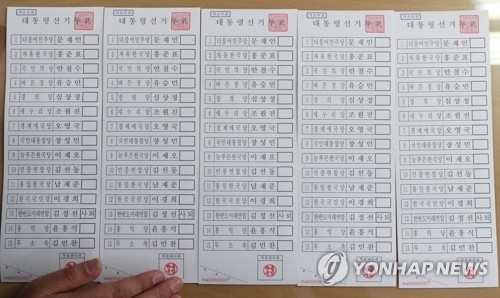 대통령선거
1 더불어민주당 문재인
2 자유한국당 홍준표
3 국민의당 안철수
4 바른정당 유승민
5 정의당 심상정
6 새누리당 조원진
7 경제애국당 오영국
8 국민대통합당 장성민
9 늘푸른한국당 이재오
10 민중연합당 김선동
11 통일한국당 남재준
12 한국국민당 이경희
13 한반도미래연합 김정선 사퇴
14 홍익당 윤홍식
15 무소속 김민찬
대통령선거
1 더불어민주당 문재인
2 자유한국당 홍준표
3 국민의당 안철수
4 바른정당 유승민
5 정의당 심상정
6 새누리당 조원진
7 경제애국당 오영국
8 국민대통합당 장성민
9 늘푸른한국당 이재오
10 민중연합당 김선동
11 통일한국당 남재준
12 한국국민당 이경희
13 한반도미래연합 김정선 사퇴
14 홍익당 윤홍식
15 무소속 김민찬
대통령선거
1 더불어민주당 문재인
2 자유한국당 홍준표
3 국민의당 안철수
4 바른정당 유승민
5 정의당 심상정
6 새누리당 조원진
7 경제애국당 오영국
8 국민대통합당 장성민
9 늘푸른한국당 이재오
10 민중연합당 김선동
11 통일한국당 남재준
12 한국국민당 이경희
13 한반도미래연합 김정선 사퇴
14 홍익당 윤홍식
15 무소속 김민찬
대통령선거
1 더불어민주당 문재인
2 자유한국당 홍준표
3 국민의당 안철수
4 바른정당 유승민
5 정의당 심상정
6 새누리당 조원진
7 경제애국당 오영국
8 국민대통합당 장성민
9 늘푸른한국당 이재오
10 민중연합당 김선동
11 통일한국당 남재준
12 한국국민당 이경희
13 한반도미래연합 김정선 사퇴
14 홍익당 윤홍식
15 무소속 김민찬
대통령선거
1 더불어민주당 문재인
2 자유한국당 홍준표
3 국민의당 안철수
4 바른정당 유승민
5 정의당 심상정
6 새누리당 조원진
7 경제애국당 오영국
8 국민대통합당 장성민
9 늘푸른한국당 이재오
10 민중연합당 김선동
11 통일한국당 남재준
12 한국국민당 이경희
13 한반도미래연합 김정선 사퇴
14 홍익당 윤홍식
15 무소속 김민찬
YONHAP NEWS